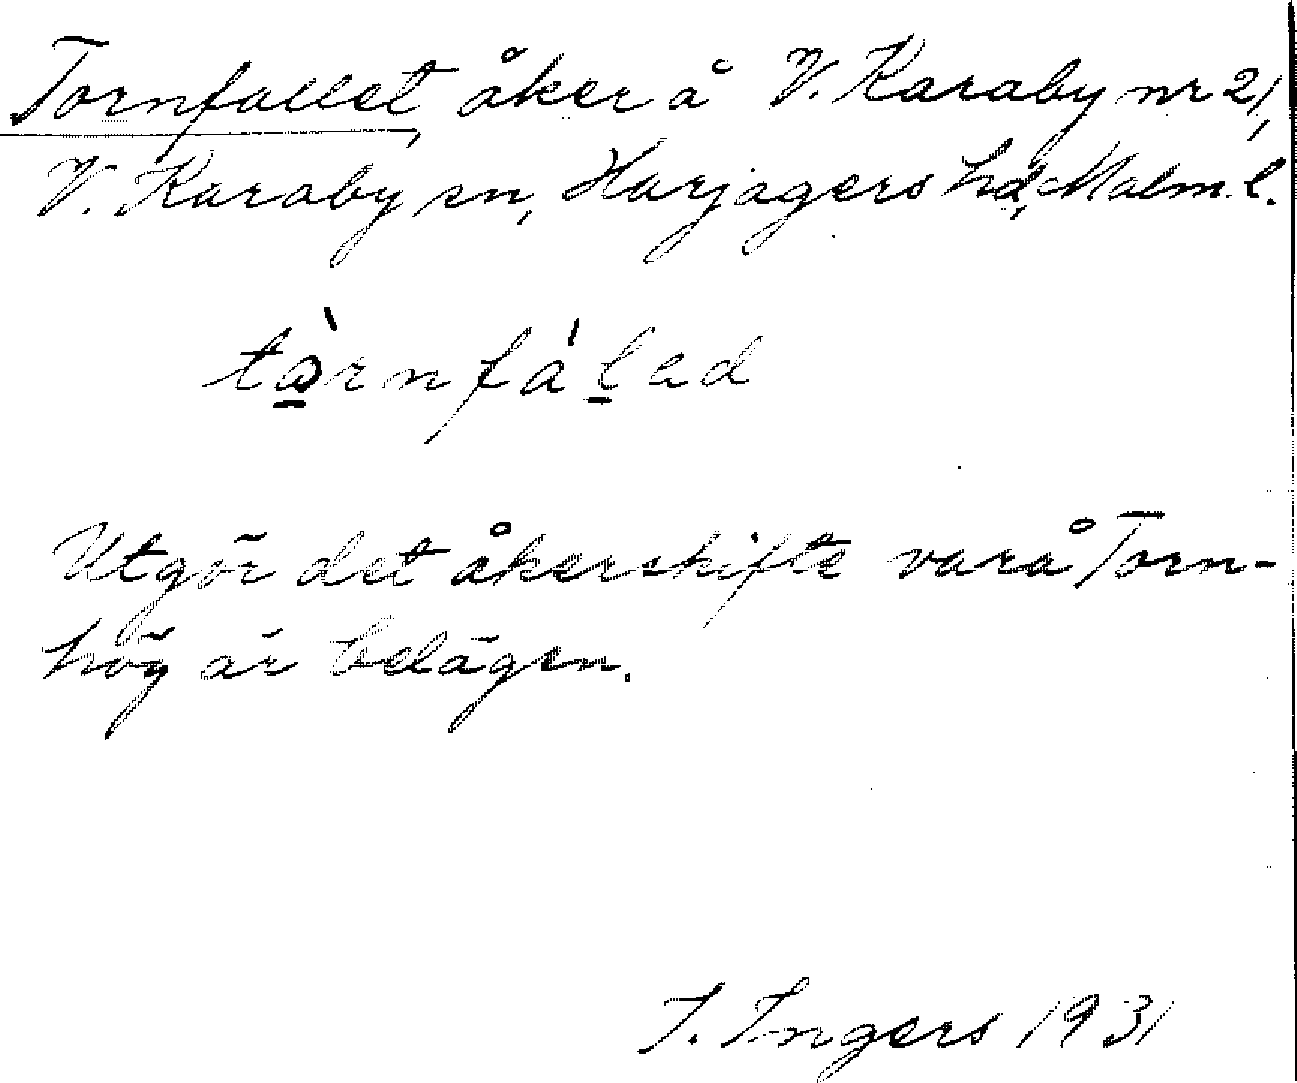 Tornfallet, åker å V. Karaby nr 21,
V. Karaby sn, Harjagers hd, Malm. l.
tò̱rnfáḻad
Utgör det åkerskifte varå Torn-
hög är belägen.
I. Ingers 1931